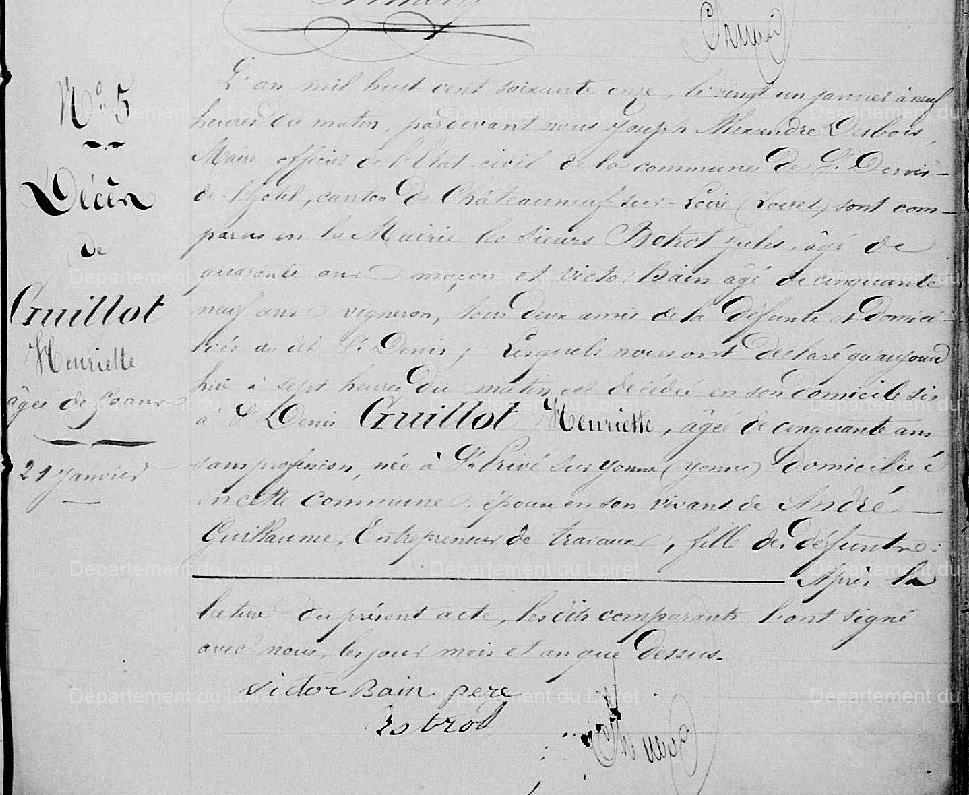 N° 5
Décès
de
Guillot
Henriette
âgée de 50 ans
21 Janvier
L'an mil huit cent soixante onze, le vingt un janvier à neuf
heures du matin, pardevant nous Joseph Alexandre Desbois,
Maire officier de l'Etat-civil de la commune de St Denis-
de-l'hôtel, canton de Châteauneuf-sur-Loire (Loiret) sont com-
parus en la Mairie les Sieurs Botrot jules, âgé de
quarante ans maçon et Victor Bain âgé de cinquante
neuf ans vigneron, tous deux amis de la défunte & domici-
liés au dit St Denis; Lesquels nous ont déclaré qu'aujourd
hui à sept heures du matin est décédée en son domicile sis
à St Denis Guillot Henriette, âgée de cinquante ans
sans profession, née à St Privé sur yonne (yonne) domiciliée
en cette commune épouse en son vivant de André
Guillaume, Entrepreneur de travaux, fille de défunts:
Après la
lecture du présent acte, les dits comparants l'ont signé
avec nous, les jour mois et an que dessus.
Victor Bain pere